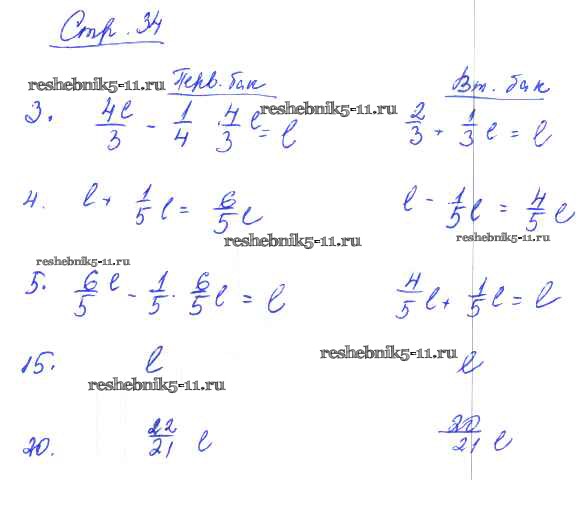 Стр. 34
reshebnik5-11.ru Перв. бак Вт. бак
reshebnik5-11.ru
3. 4l/3 - 1/4 · 4/3 l = l 2/3 + 1/3 l = l
4. l + 1/5 l = 6/5 l l - 1/5 l = 4/5 l
reshebnik5-11.ru reshebnik5-11.ru
reshebnik5-11.ru
5. 6/5 l - 1/5 · 6/5 l = l 4/5 l + 1/5 l = l
reshebnik5-11.ru
15. l l
reshebnik5-11.ru
20. 22/21 l 20/21 l